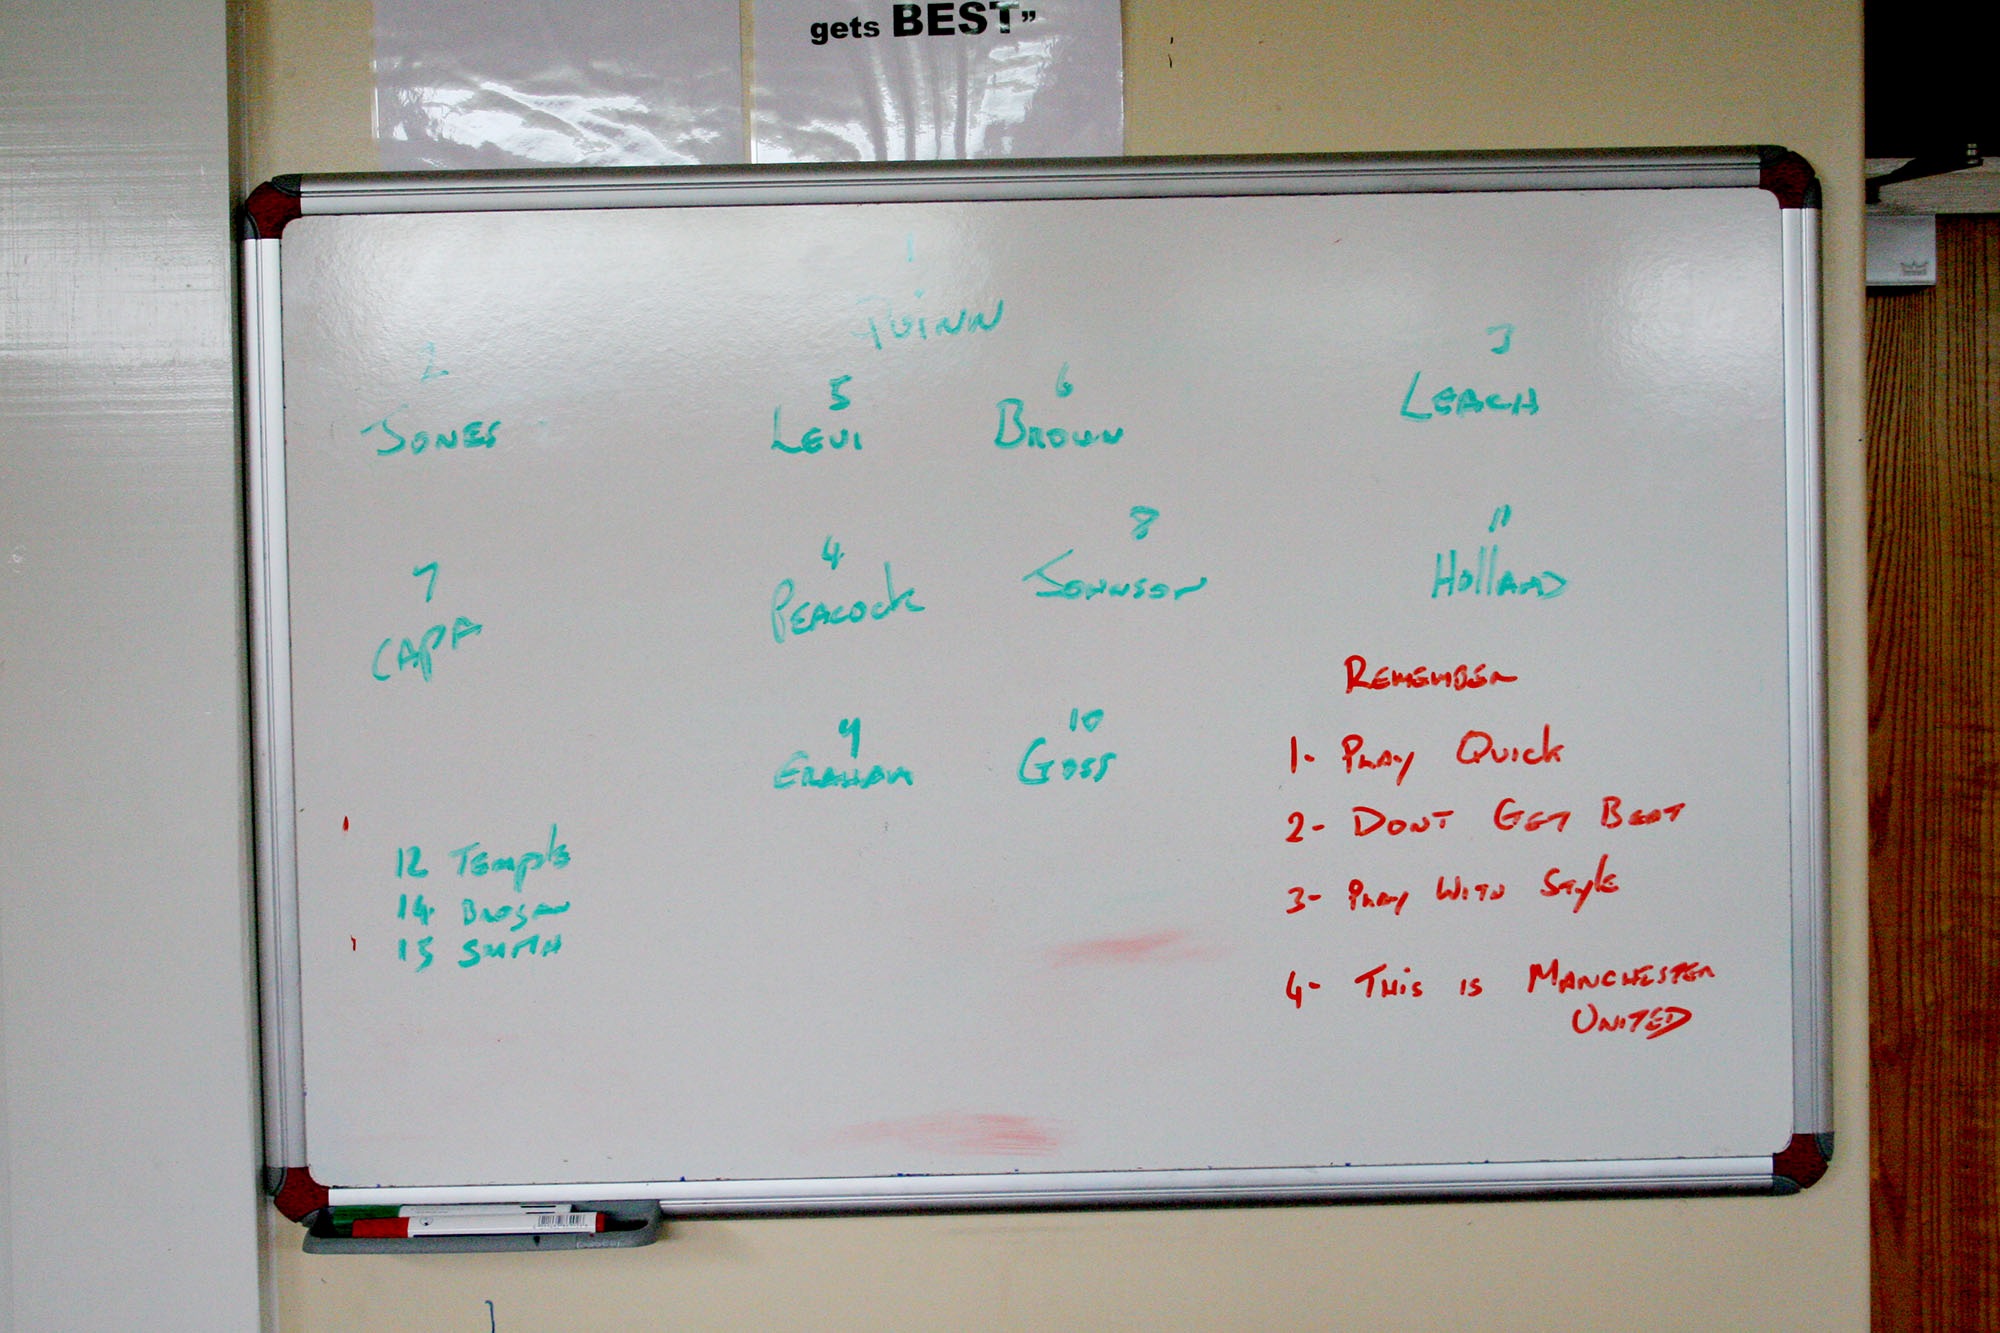 gets BEST”
1
Quinn
2
Jones
5
Levi
6
Brown
3
Leach
7
Capa
4
Peacock
8
Johnson
11
Holland
9
Graham
10
Goss
12 Temple
14 Brogan
15 Smith
Remember
1- Play Quick
2- Dont Get Beat
3- Play With Style
4- This is Manchester
United